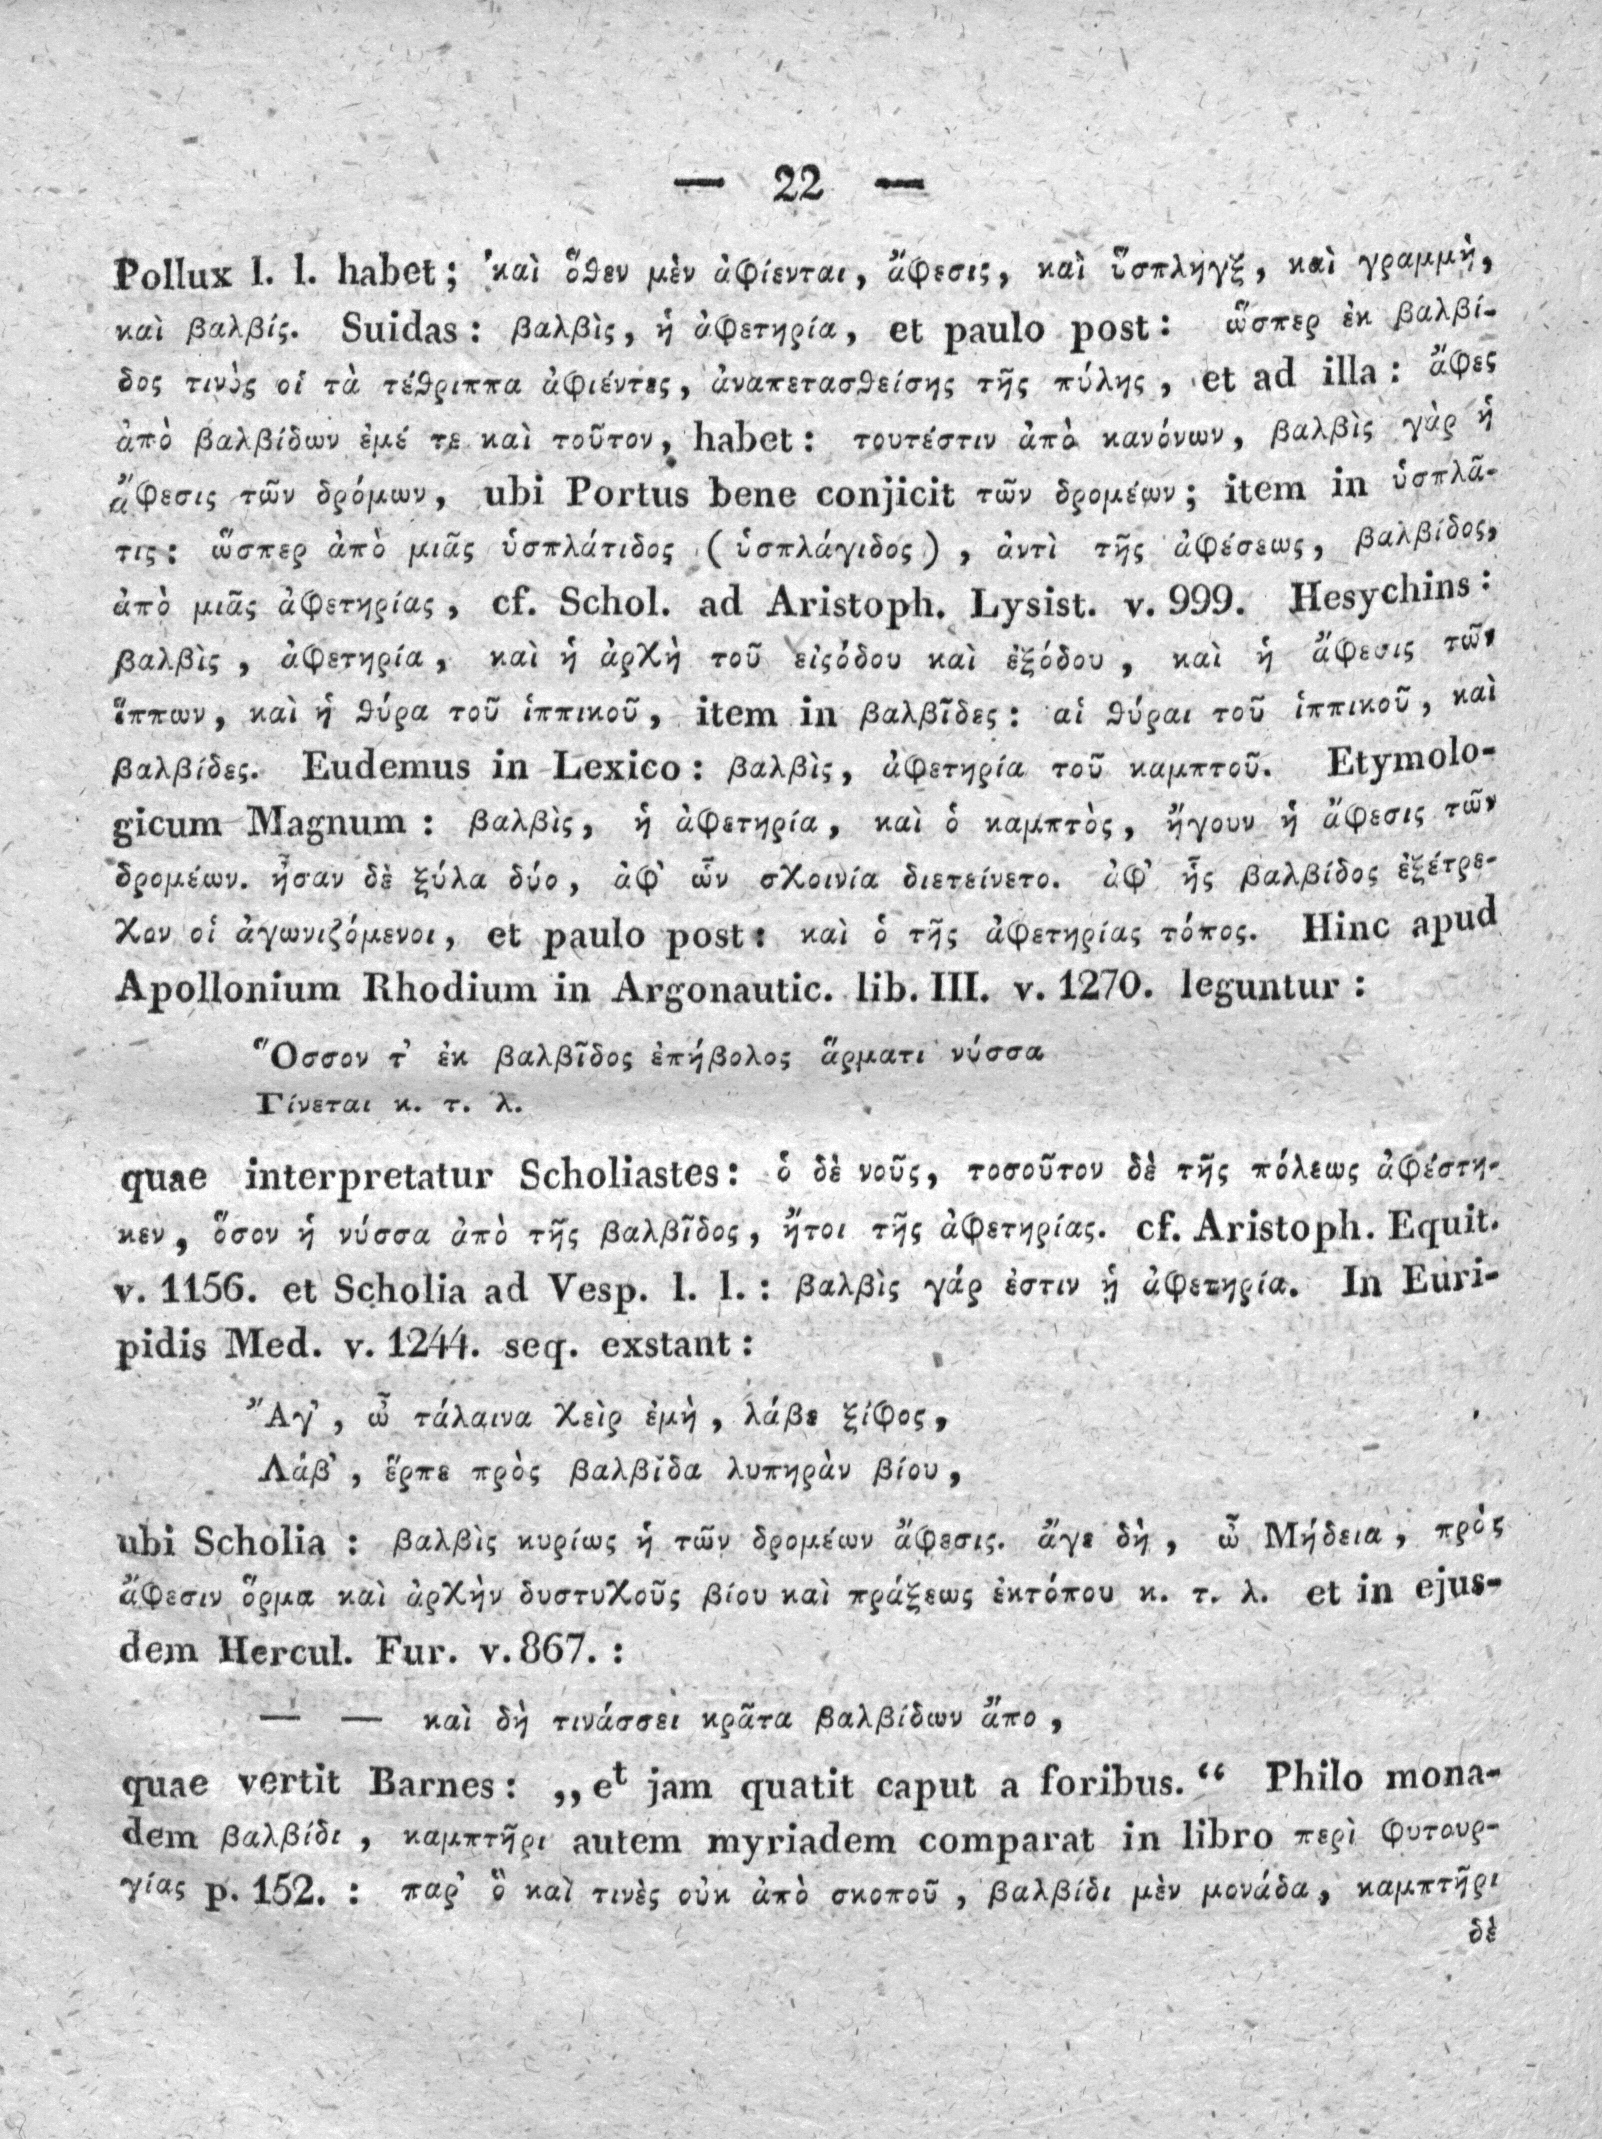 — 22 —
Pollux l. l. habet; καὶ ὅθεν μὲν ἀφίενται, ἄφεσις, καὶ ὕσπληγξ, καὶ γραμμὴ,
καὶ βαλβίς. Suidas: βαλβὶς, ἡ ἀφετηρία, et paulo post: ὥσπερ ἐκ βαλβί-
δος τινὸς οἱ τὰ τέθριππα ἀφιέντες, ἀναπετασθείσης τῆς πύλης, et ad illa: ἄφες
ἀπὸ βαλβίδων ἐμέ τε καὶ τοῦτον, habet: τουτέστιν ἀπὸ κανόνων, βαλβὶς γὰρ ἡ
ἄφεσις τῶν δρόμων, ubi Portus bene conjicit τῶν δρομέων; item in ὑσπλᾶ-
τις: ὥσπερ ἀπὸ μιᾶς ὑσπλάτιδος (ὑσπλάγιδος), ἀντὶ τῆς ἀφέσεως, βαλβίδος,
ἀπὸ μιᾶς ἀφετηρίας, cf. Schol. ad Aristoph. Lysist. v. 999. Hesychins:
βαλβὶς, ἀφετηρία, καὶ ἡ ἀρχὴ τοῦ εἰςόδου καὶ ἐξόδου, καὶ ἡ ἄφεσις τῶν
ἵππων, καὶ ἡ θύρα τοῦ ἱππικοῦ, item in βαλβῖδες: αἱ θύραι τοῦ ἱππικοῦ, καὶ
βαλβίδες. Eudemus in Lexico: βαλβὶς, ἀφετηρία τοῦ καμπτοῦ. Etymolo-
gicum Magnum: βαλβὶς, ἡ ἀφετηρία, καὶ ὁ καμπτὸς, ἤγουν ἡ ἄφεσις τῶν
δρομέων. ἦσαν δὲ ξύλα δύο, ἀφ᾽ ὧν σχοινία διετείνετο. ἀφ᾽ ἧς βαλβίδος ἐξέτρε-
χον οἱ ἀγωνιζόμενοι, et paulo post: καὶ ὁ τῆς ἀφετηρίας τόπος. Hinc apud
Apollonium Rhodium in Argonautic. lib. III. v. 1270. leguntur:
Ὅσσον τ᾽ ἐκ βαλβῖδος ἐπήβολος ἅρματι νύσσα
Γίνεται κ. τ. λ.
quae interpretatur Scholiastes: ὁ δὲ νοῦς, τοσοῦτον δὲ τῆς πόλεως ἀφέστη-
κεν, ὅσον ἡ νύσσα ἀπὸ τῆς βαλβῖδος, ἤτοι τῆς ἀφετηρίας. cf. Aristoph. Equit.
v. 1156. et Scholia ad Vesp. l. l.: βαλβὶς γάρ ἐστιν ἡ ἀφετηρία. In Euri-
pidis Med. v. 1244. seq. exstant:
Ἄγ᾽, ὦ τάλαινα χεὶρ ἐμὴ, λάβε ξίφος,
Λάβ᾽, ἕρπε πρὸς βαλβῖδα λυπηρὰν βίου,
ubi Scholia: βαλβὶς κυρίως ἡ τῶν δρομέων ἄφεσις. ἄγε δὴ, ὦ Μήδεια, πρὸς
ἄφεσιν ὅρμα καὶ ἀρχὴν δυστυχοῦς βίου καὶ πράξεως ἐκτόπου κ. τ. λ. et in ejus-
dem Hercul. Fur. v. 867.:
— — καὶ δὴ τινάσσει κρᾶτα βαλβίδων ἄπο,
quae vertit Barnes: „et jam quatit caput a foribus.“ Philo mona-
dem βαλβίδι, καμπτῆρι autem myriadem comparat in libro περὶ φυτουρ-
γίας p. 152.: παρ᾽ ὃ καὶ τινὲς οὐκ ἀπὸ σκοποῦ, βαλβίδι μὲν μονάδα, καμπτῆρι
δὲ